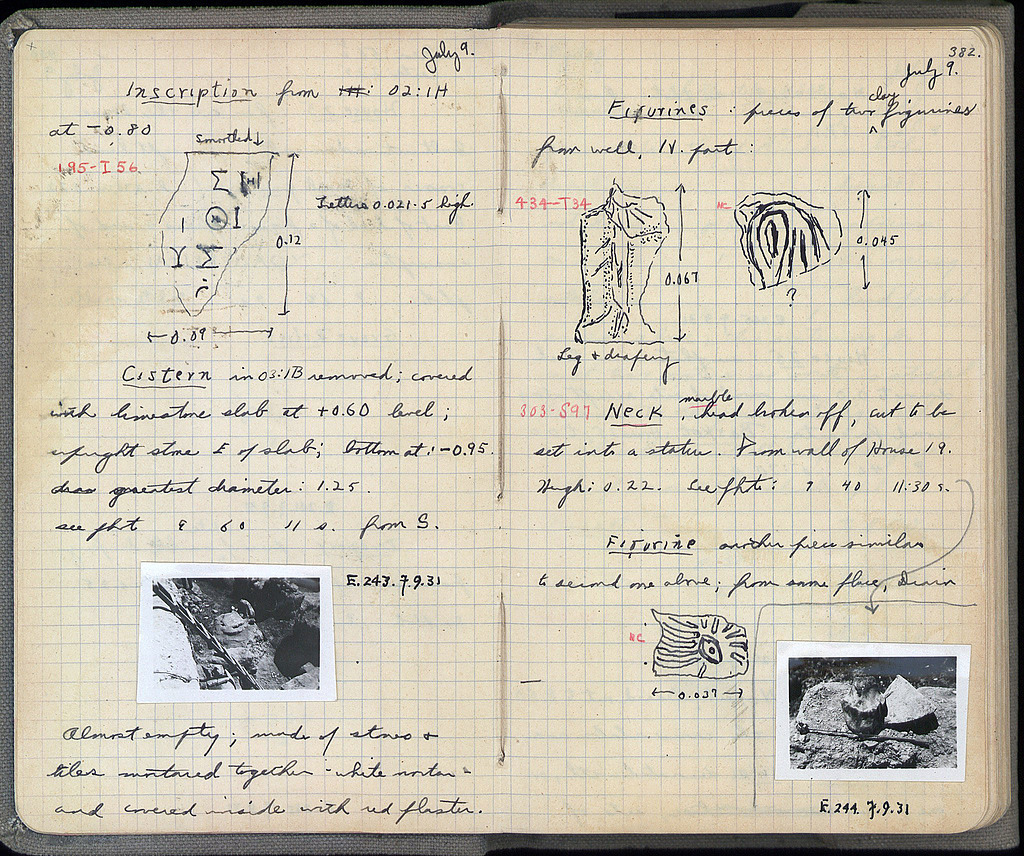 July 9.
Inscription from 02:1H
at -0.80
smoothed
195-I 56
Σ
Letters 0.021.5 high.
0.12
0.09
Cistern in 03:1B removed; covered
with limestone slab at +0.60 level;
upright stone E of slab; bottom at: -0.95.
greatest diameter: 1.25.
see phot 9 60 11 s. from S.
E.243. 7.9.31
Almost empty; made of stones &
tiles mortared together - white mortar -
and covered inside with red plaster.
382.
July 9.
Figurines: pieces of two clay figurines
from well, N. part:
434-T34
NC
0.067
0.045
?
Leg & drapery
303-S97 Neck, marble, head broken off, cut to be
set into a statue. From wall of House 19.
High: 0.22. See phot: 9 40 11:30 s.
Figurine another piece similar
to second one above; from same place, Drain
NC
0.037
E.244. 7.9.31